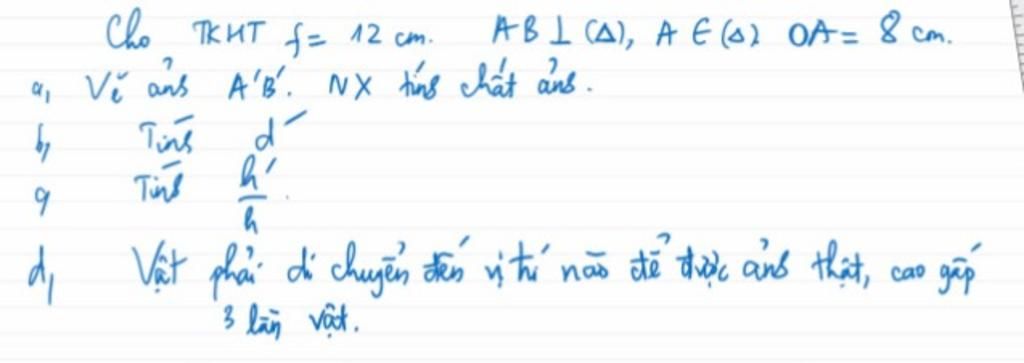 Cho TKHT f = 12 cm. AB ⊥ (Δ), A ∈ (Δ) OA = 8 cm.
a, Vẽ ảnh A'B'. NX tính chất ảnh.
b, Tính d'
c, Tính h'/h.
d, Vật phải di chuyển đến vị trí nào để được ảnh thật, cao gấp
3 lần vật.